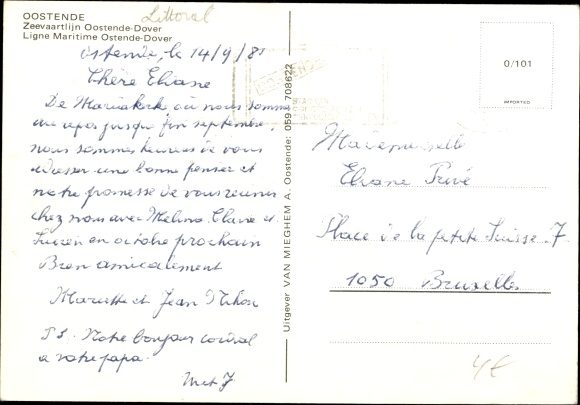 OOSTENDE
Littoral
Zeevaartlijn Oostende-Dover
Ligne Maritime Ostende-Dover
Ostende, le 14/9/8
Chère Eliane
De Mariakerke où nous sommes
au repos jusqu'fin septembre,
nous sommes heureux de vous
adresser une bonne pensée et
notre promesse de vous réunir
chez nous avec Melina, Claire et
en octobre prochain
Bien amicalement
Mariette et Jean
P.S. Notre bonjour cordial
a votre papa.
M et J
Uitgever VAN MIEGHEM A. Oostende: 059 708622
0/101
IMPORTED
Mademoiselle
Eliane Privé
Place de la petite Suisse 7
1050 Bruxelles
4€